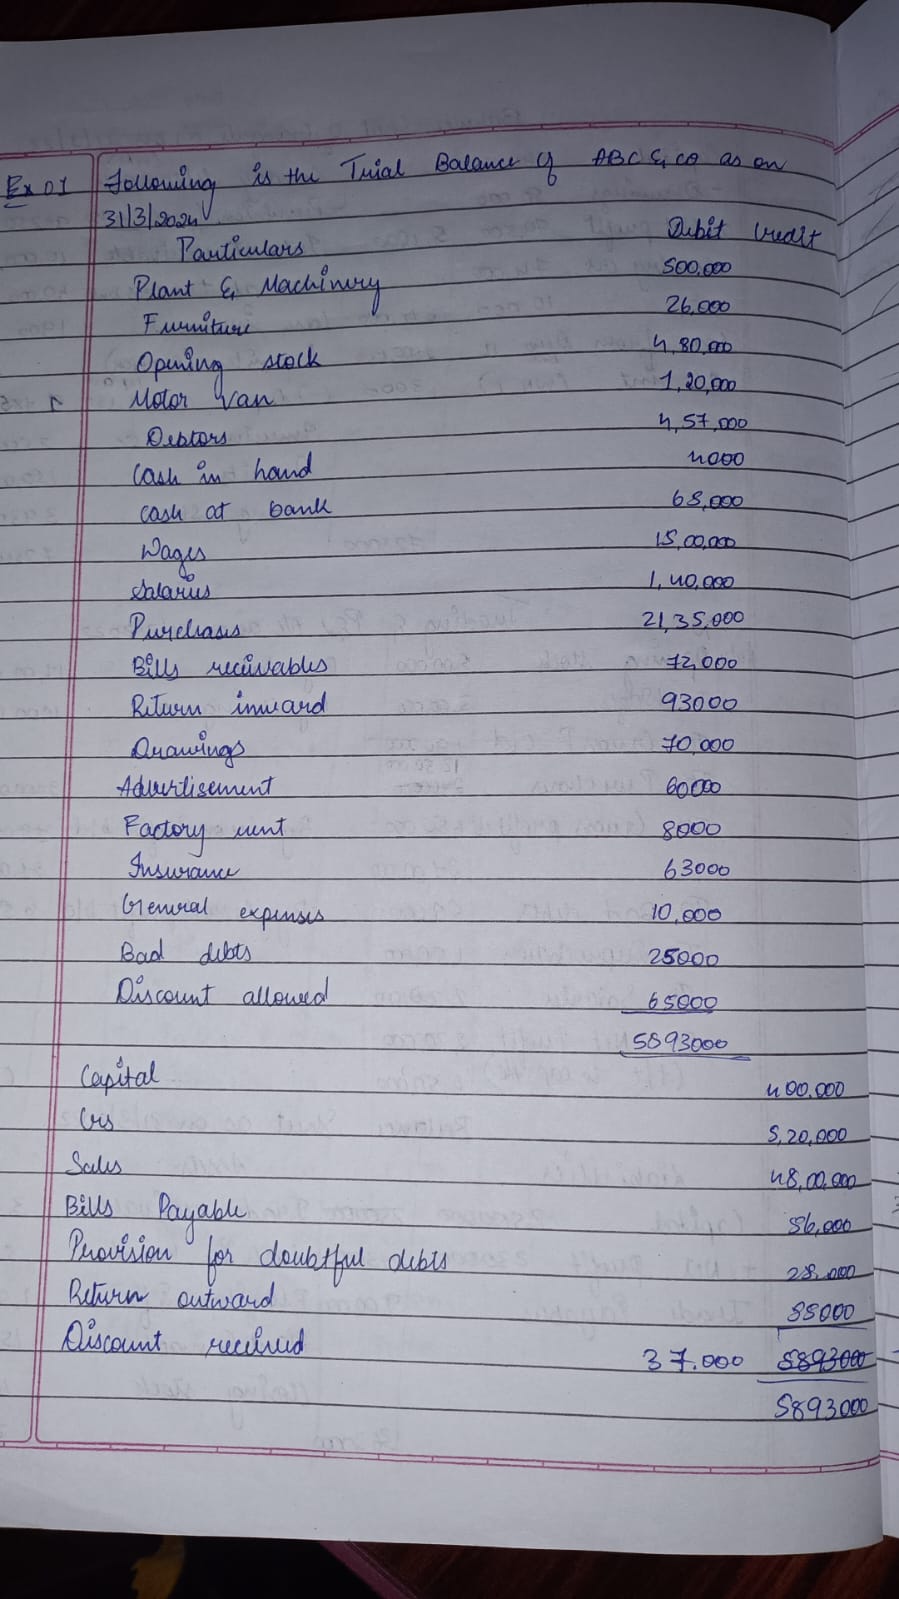 Ex 01 Following is the Trial Balance of ABC & co as on
31/3/2024
Particulars Debit Credit
Plant & Machinery 500,000
Furniture 26,000
Opening stock 4,80,000
Motor Van 1,20,000
Debtors 4,57,000
Cash in hand 4000
Cash at bank 65,000
Wages 15,00,000
Salaries 1,40,000
Purchases 21,35,000
Bills receivables 72,000
Return inward 93000
Drawings 70,000
Advertisement 60000
Factory rent 8000
Insurance 63000
General expenses 10,000
Bad debts 25000
Discount allowed 65000
5893000
Capital 400,000
Crs 5,20,000
Sales 48,00,000
Bills Payable 56,000
Provision for doubtful debts 25,000
Return outward 55000
Discount received 37,000 5893000
5893000